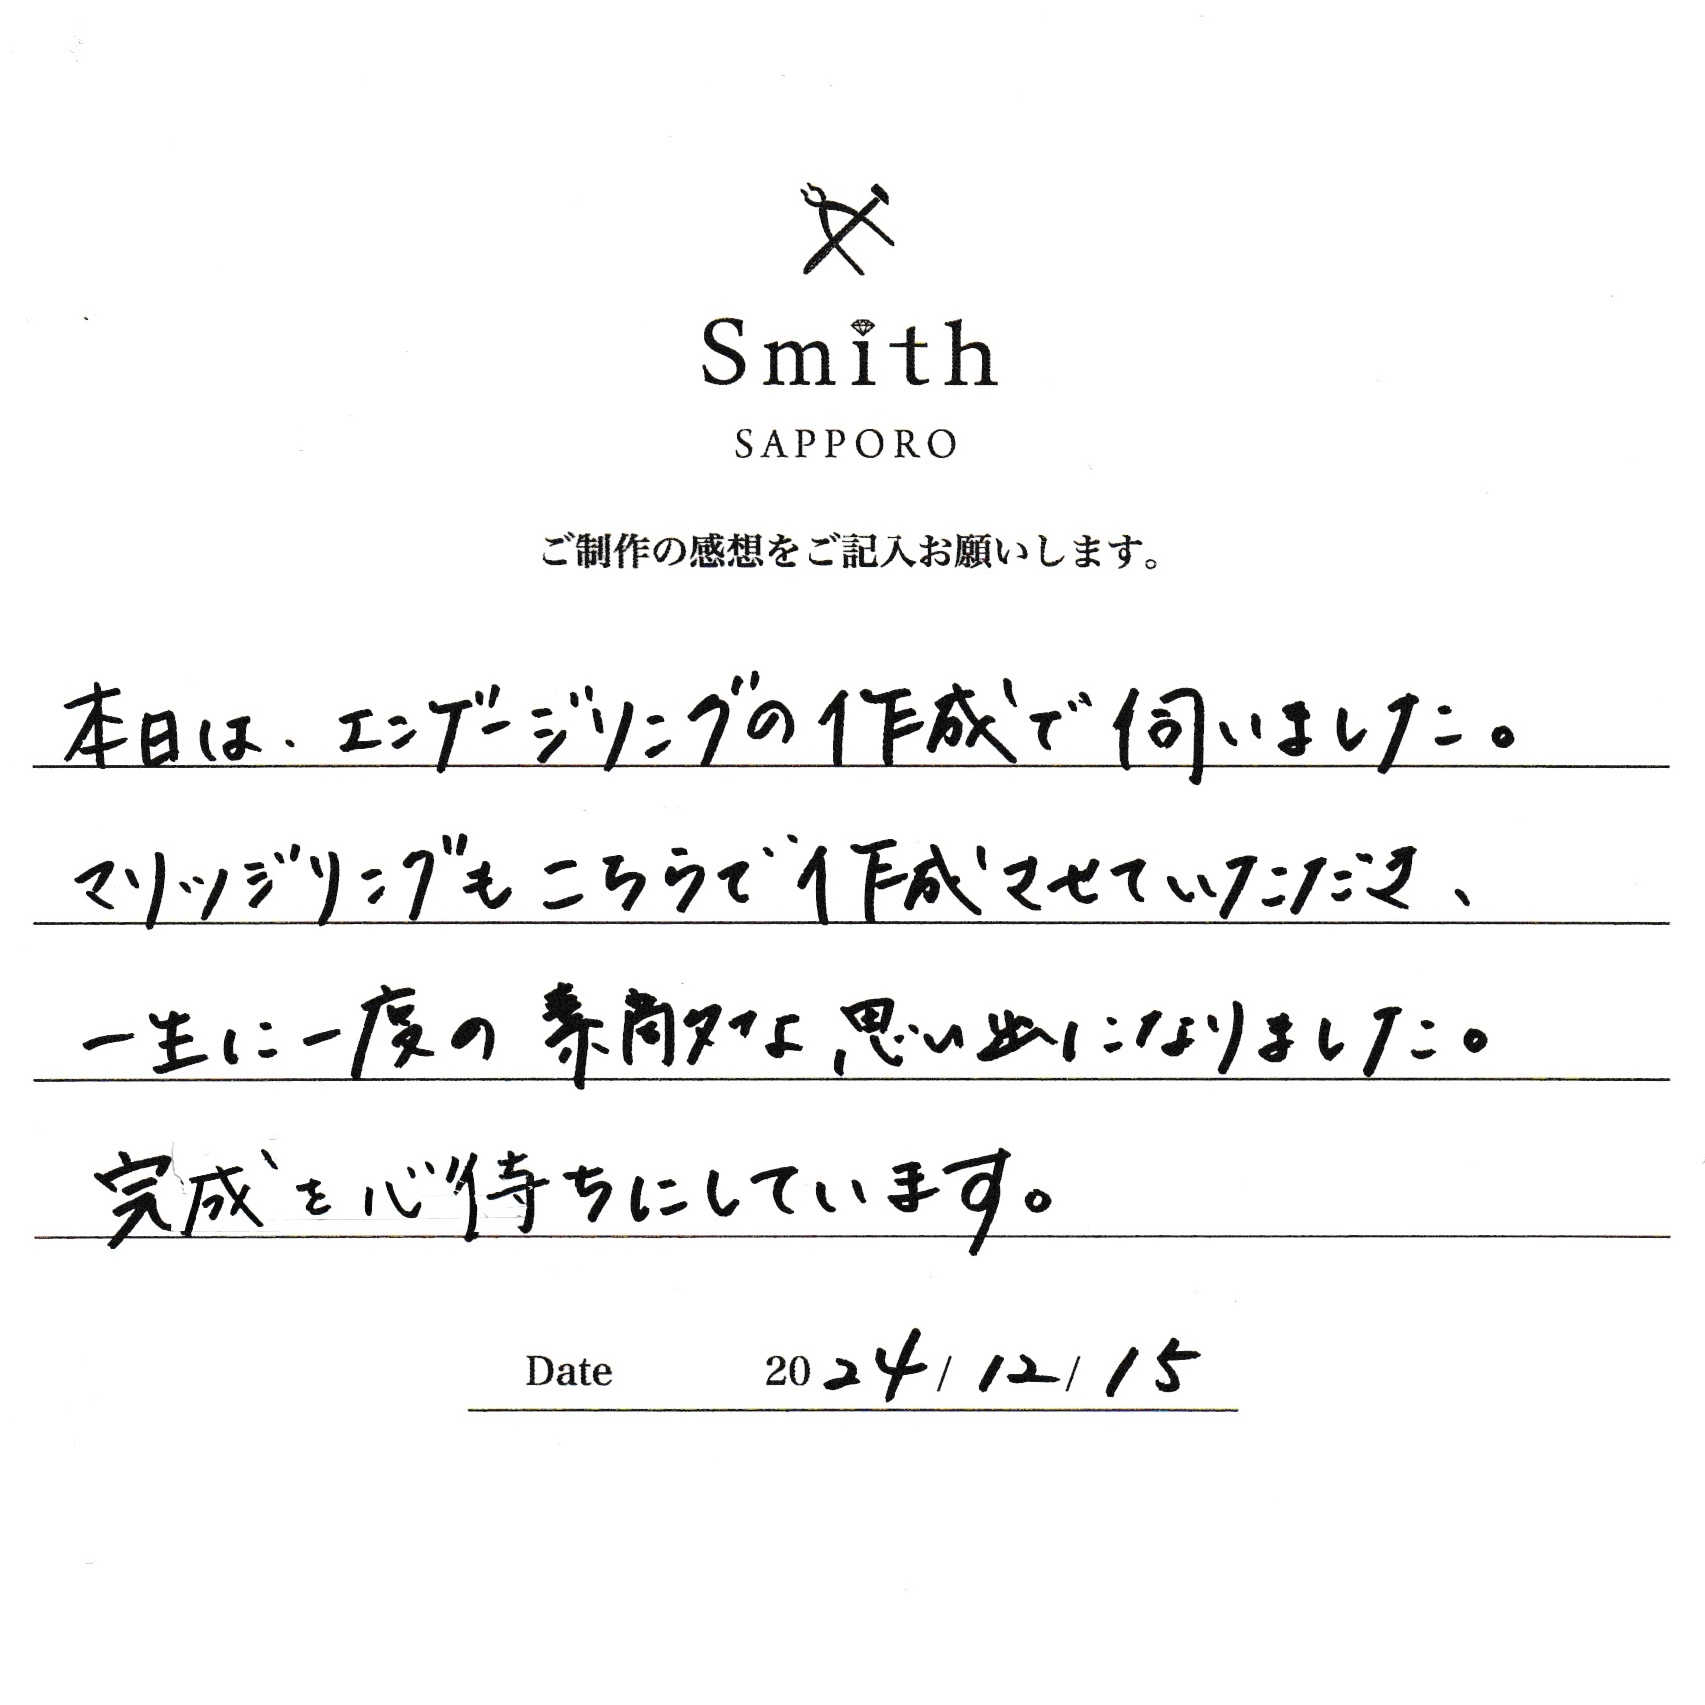 Smith
SAPPORO
ご制作の感想をご記入お願いします。
本日は、エンゲージリングの作成で伺いました。
マリッジリングもこちらで作成させていただき、
一生に一度の素敵な思い出になりました。
完成を心待ちにしています。
Date 2024/12/15